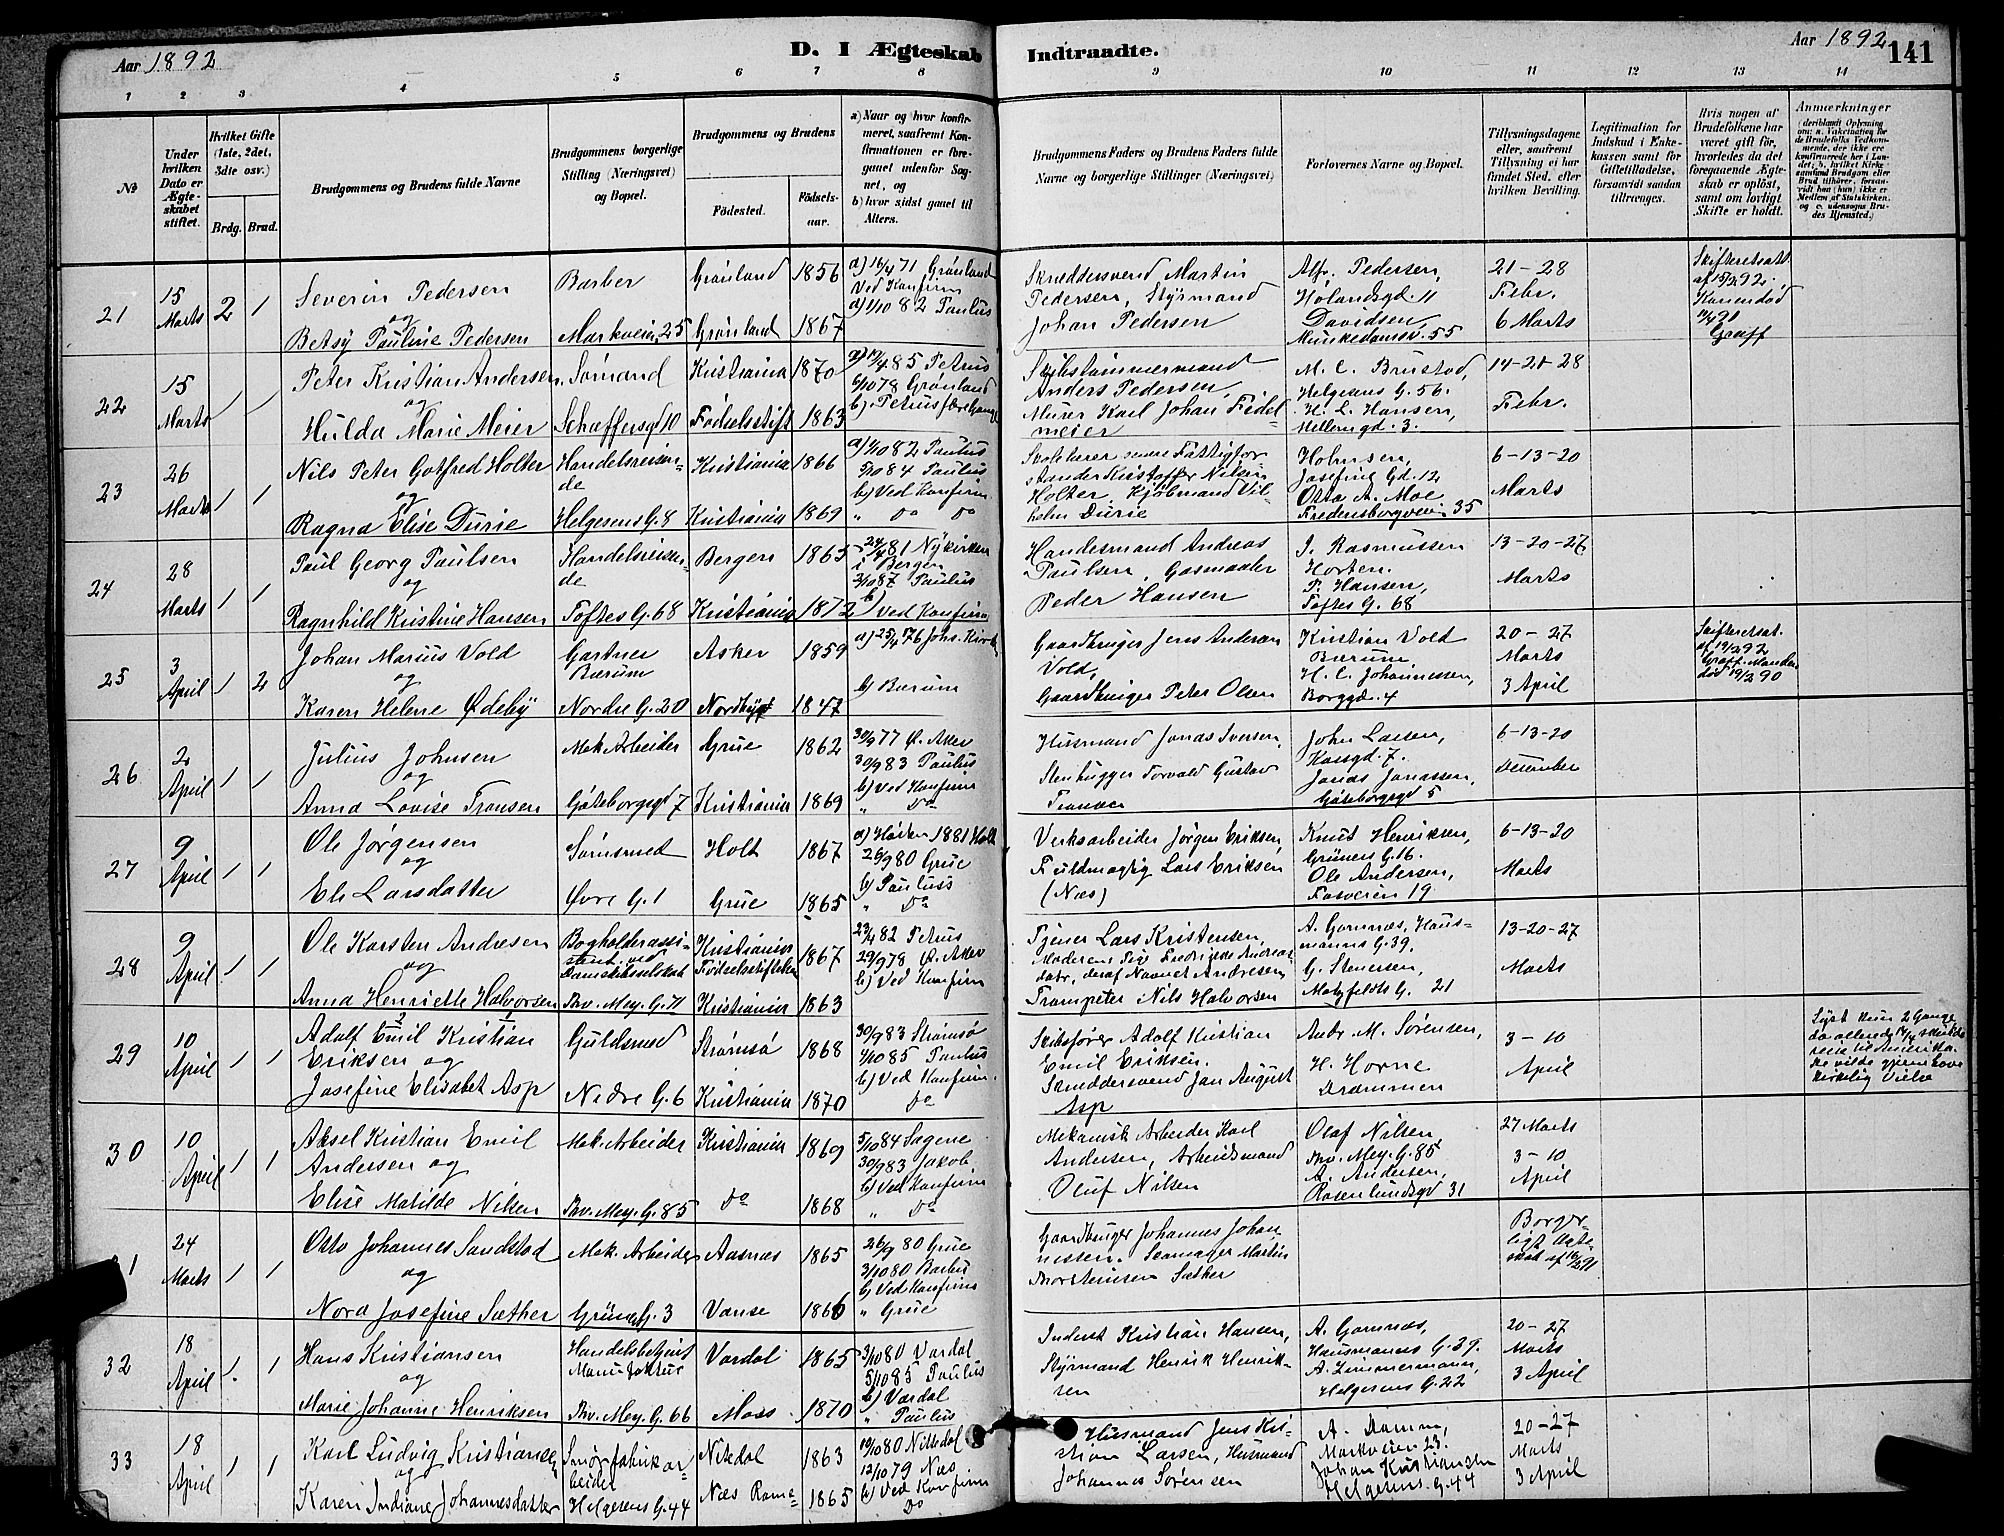 Aar 1892
D. I Ægteskab
Indtraadte.
Aar 1892
141
1 2 3 4 5 6 7 8 9 10 11 12 13 14
No
Under hvilken Dato er Ægteskabet stiftet.
Hvilket Gifte (1ste, 2det, 3dte osv.)
Brdg. Brud.
Brudgommens og Brudens fulde Navne
Brudgommens borgerlige Stilling (Næringsvei) og Bopæl.
Brudgommens og Brudens
Fødested.
Fødselsaar.
a) Naar og hvor konfirmeret, saafremt Konfirmationen er foregaaet udenfor Sognet, og
b) hvor sidst gaaet til Alters.
Brudgommens Faders og Brudens Faders fulde Navne og borgerlige Stillinger (Næringsvei)
Forlovernes Navne og Bopæl.
Tillysningsdagene eller, saafremt Tillysning ei har fundet Sted, efter hvilken Bevilling.
Legitimation for Indskud i Enkekassen samt for Giftetilladelse, forsaavidt saadan tiltrænges.
Hvis nogen af Brudefolkene har været gift før, hvorledes da det foregaaende Ægteskab er opløst, samt om lovligt Skifte er holdt.
Anmærkninger
21 15 Marts 2 1
Severin Pedersen
og
Betsy Pauline Pedersen
Barber
Markveien 25
Grønland 1856
Grønland 1867
a) 16/4 71 Grønland
Ved Konfirm
a) 1/10 82 Paulus
Skræddersvend Martin
Pedersen, Styrmand
Johan Pedersen
Alfr. Pedersen,
Hølandsgd. 11
Davidsen,
Munkedamsv. 55
21-28
Febr.
6 Marts
Skifteretsatt
Konen død
Graff
22 15 Marts 1 1
Peter Kristian Andersen
og
Hulda Marie Meier
Sømand
Schæffersgd 10
Kristiania 1870
Fødselsstift 1863
85 Petrus
6/10 78 Grønland
b) Petrus
Skibstømmermand
Anders Pedersen,
Murer Karl Johan Fidel-
meier
M. C. Brustad,
Helgesens G. 56.
H. L. Hansen,
Møllergd. 3.
14-21-28
Febr.
23 26 Marts 1 1
Nils Peter Gotfred Holter
og
Ragna Elise Durie
Handelsreisen-
de
Helgesens G. 8
Kristiania 1866
Kristiania 1869
a) 1/10 82 Paulus
5/10 84 Paulus
b) Ved Konfirm
" Do Do
Skolelærer senere Fattigfor
stander Kristoffer Nilsen
Holter, Kjøbmand Vil-
helm Durie
Holmsen,
Josefine Gd. 12
Otto A. Moe
Frederiksborgvein 35
6-13-20
Marts
24 28 Marts 1 1
Paul Georg Paulsen
og
Ragnhild Kristine Hansen
Handelsreisen-
de
Toftes G. 68
Bergen 1865
Kristiania 1872
24/4 81 Nykirken
i Bergen
2/10 87 Paulus
b) Ved Konfirm
Handelsmand Andreas
Paulsen, Gasmaaler
Peder Hansen
J. Rasmussen
Horten.
P. Hansen,
Toftes G. 68
13-20-27
Marts
25 3 April 1 2
Johan Marius Vold
og
Karen Helene Ødeby
Gartner
Bærum
Nordre G. 20
Asker 1859
Nordby 1847
a) 25/4 76 Johs. Kirke
b) Bærum
Gaardbruger Jens Andersen
Vold,
Gaardbruger Peter Olsen
Kristian Vold
Bærum
H. C. Johannessen,
Borggd. 4
20-27
Marts
3 April
Skifteretsat.
af 19/2 92
Graff. Manden
død 19/2 90
26 2 April 1 1
Julius Johnsen
og
Anna Lovise Transen
Mek. Arbeider
Göteborgsgd 7
Grue 1862
Kristiania 1869
30/9 77 Ø. Aker
30/9 83 Paulus
b) Ved Konfirm
" Do
Husmand Jonas Iversen,
Stenhugger Torvald Gustav
John Larsen,
Korsgd. 7.
Jonas Jonassen,
Göteborgsgd 5
6-13-20
December
27 9 April 1 1
Ole Jørgensen
og
Eli Larsdatter
Sømsmed
Øvre G. 1
Holt 1867
Grue 1865
a) Høsten 1881 Holt
26/9 80 Grue
b) Pauluss
" Do
Verksarbeider Jørgen Eriksen,
Fuldmægtig Lars Eriksen
(Næs)
Knut Henriksen,
Grüners G. 16.
Ole Andersen,
Fosveien 19
6-13-20
Marts
28 9 April 1 1
Ole Karsten Andresen
og
Anna Henriette Halvorsen
Bogholderassi-
stent ved
Dampskibsselskab
Thv. Mey. G. 71
Kristiania
Fødselsstiftelsen 1867
Kristiania 1863
23/4 82 Petrus
29/9 78 Ø. Aker
b) Ved Konfirm
Tjener Lars Kristensen,
Moderens Pige Fredrikke Andreas
datr, deraf Navnet Andresen,
Trompeter Nils Halvorsen
A. Gomnæs, Haus-
manns G. 39.
G. Stenersen,
Motzfeldts G. 21
13-20-27
Marts
29 10 April 1 1
Adolf Emil Kristian
Eriksen og
Josefine Elisabet Asp
Guldsmed
Nedre G. 6
Strømsø 1868
Kristiania 1870
30/9 83 Strømsø
4/10 85 Paulus
b) Ved Konfirm.
Do
Skibsfører Adolf Kristian
Emil Eriksen.
Skræddersvend Jan August
Asp
Andr. M. Sørensen,
H. Horne
Drammen
3-10
April
Lyst kun 2 Gange
da allerede skulde
reise til Amerika.
De vilde gjerne have
kirkelig Vielse
30 10 April 1 1
Aksel Kristian Emil
Andersen og
Elise Matilde Nilsen
Mek. Arbeider
Thv. Mey. G. 85
Kristiania 1869
Do 1868
5/10 84 Sagene
30/9 83 Jakob.
b) Ved Konfirm
" Do
Mekanisk Arbeider Karl
Andersen, Arbeidsmand
Oluf Nilsen
Olaf Nilsen
Thv. Mey. G. 85
A. Andersen,
Rosenlundsgd 31
27 Marts
3-10
April
31 24 Marts 1 1
Otto Johannes Sandstad
og
Nora Josefine Sæther
Mek. Arbeider
Grüners G. 3
Aasnæs 1865
Vanse 1866
26/9 80 Grue
3/10 80 Barbu
b) Ved Konfirm
" Grue
Gaardbruger Johannes Johan-
nessen. Skomager Martin
Thorsteinsen Sæther
Borger-
ligt Ægte-
skab af
32 18 April 1 1
Hans Kristiansen
og
Marie Johanne Henriksen
Handelsbetjent
Thv. Mey. G. 66
Vardal 1865
Moss 1870
3/10 80 Vardal
5/10 85 Paulus
b) Vardal
" Paulus
Inderst Kristian Hansen,
Styrmand Henrik Henrik-
sen
A. Gomnæs,
Hausmanns G. 39.
A. Zimmermann,
Helgesens G. 22
20-27
Marts
3 April
33 18 April 1 1
Karl Ludvig Kristiansen
og
Karen Indiane Johannesdatter
Smørfabrikar-
beider
Helgesens G. 44
Nitedal 1863
Næs Rome- 1865
10/10 80 Nittedal
12/10 79 Næs
b) Ved Konfirm
Do
Husmand Jens Kri-
stian Larsen, Husmand
Johannes Sørensen
A. Damm,
Markveien 23.
Johan Kristiansen
Helgesens G. 44
20-27
Marts
3 April